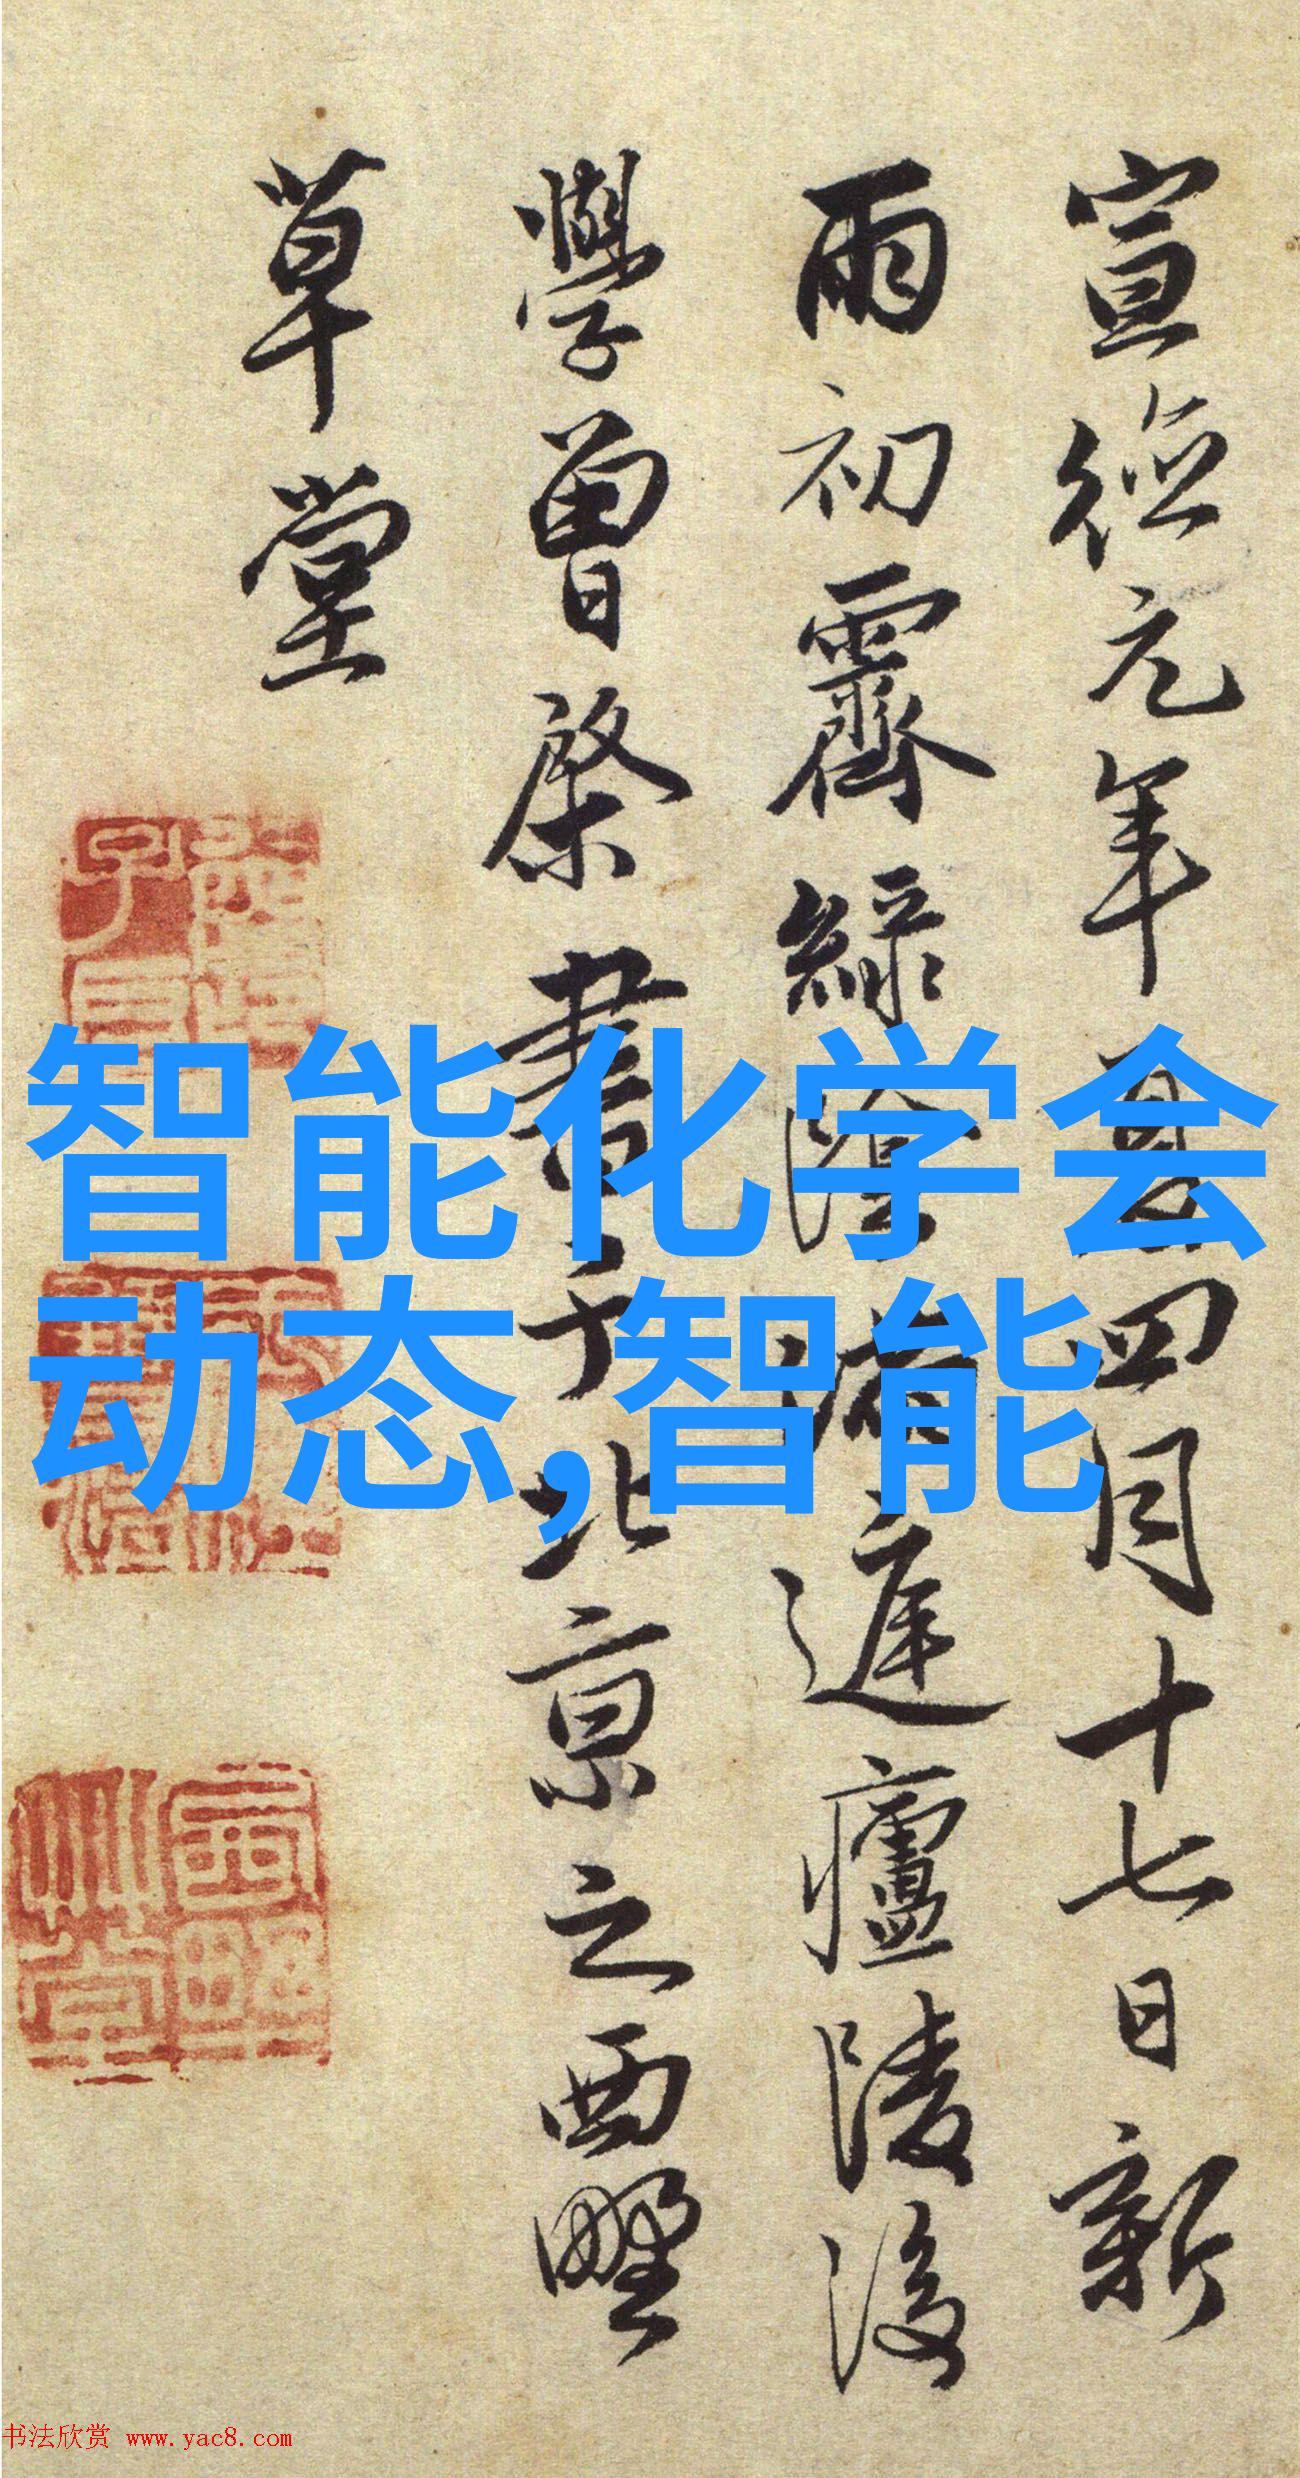 宣德元年夏四月十七日新
雨初霽綠陰滿庭廬陵後
學曾棨書于北京之西墅
草堂
智能化学会
动态,智能
书法欣赏 www.yac8.com